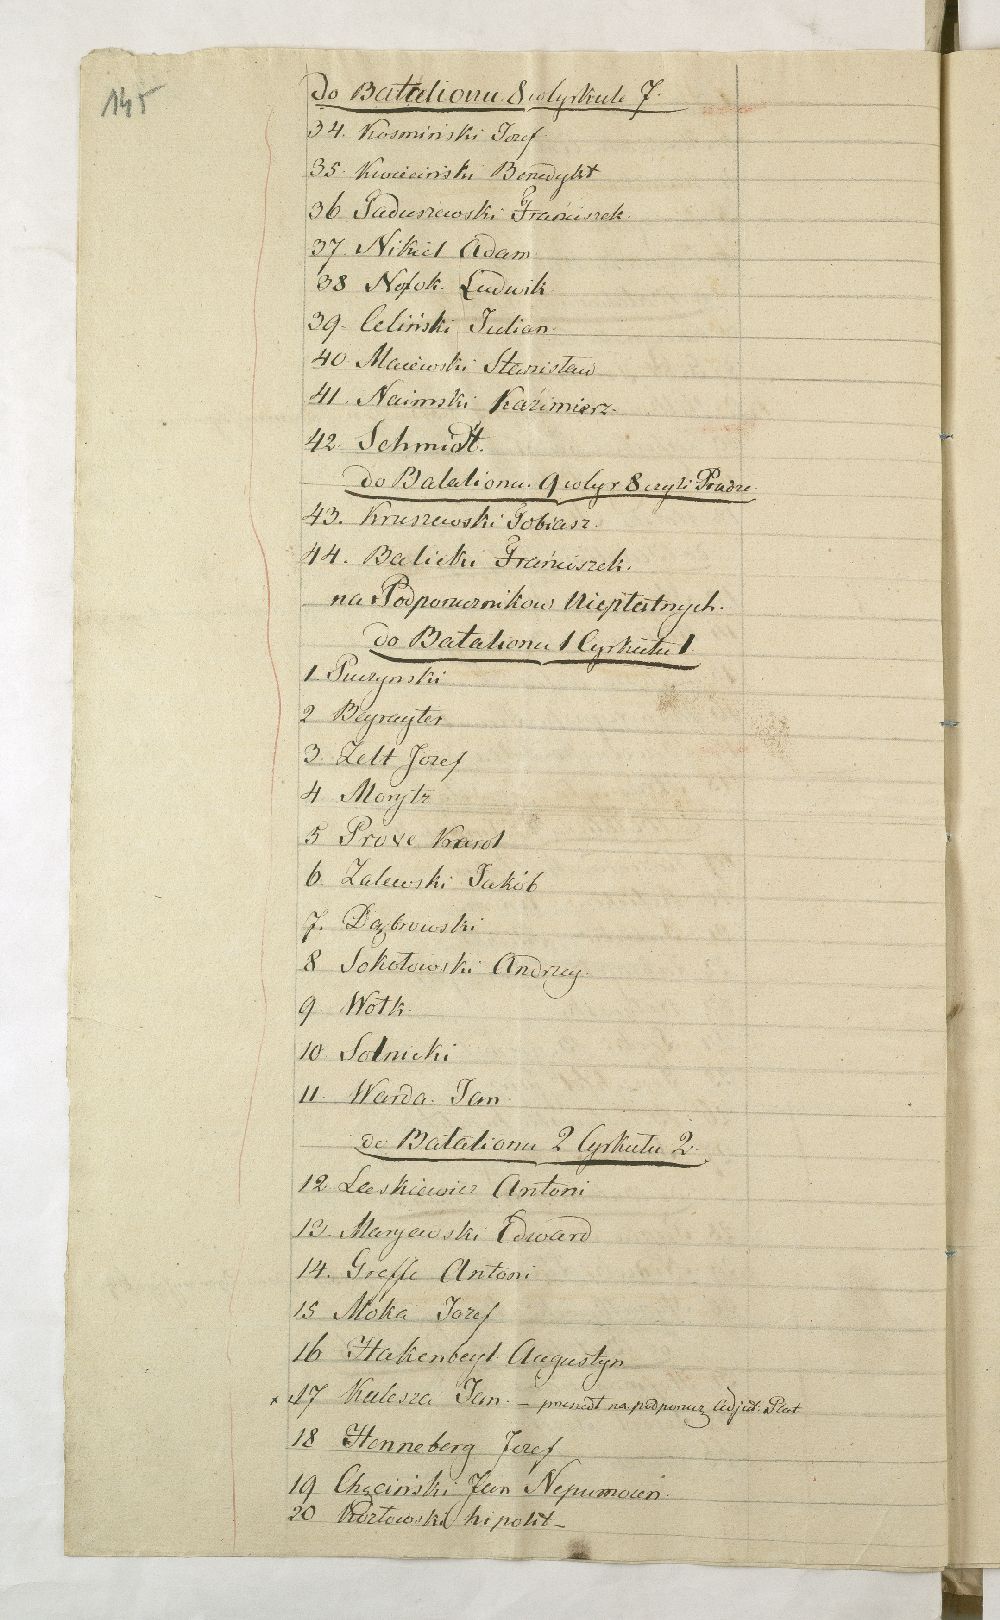 145
do Batalionu 8 w Cyrkule 7.
34. Kosmiński Jozef
35. Kwieciński Benedykt
36 Taduszewski Franciszek
37. Nikiel Adam
38 Nofok Ludwik
39. Celiński Julian
40 Maiewski Stanisław
41. Naimski Kazimierz.
42. Schmidt.
do Batalionu 9 w Cyr 8 czyli Pradze
43. Kruszewski Tobiasz.
44. Balicki Franciszek.
na Podporucznikow Niepłatnych.
do Batalionu 1 Cyrkułu 1
1 Puczynski
2 Beyrayter
3. Zelt Jozef
4 Morytz
5 Prove Karol
6. Zalewski Jakób
7. Dąbrowski
8 Sokołowski Andrzey
9 Wołk.
10 Solnicki
11. Warda Jan
do Batalionu 2 Cyrkułu 2.
12 Leskiewicz Antoni
13. Maryewski Edward
14. Greffe Antoni
15 Moka Jozef
16 Hakenbeyl Augustyn
x 17 Kulesza Jan. – na podporucz Adjut. Płat
18 Henneberg Jozef
19 Chęciński Jan Nepumocen
20 Kozłowski hipolit –